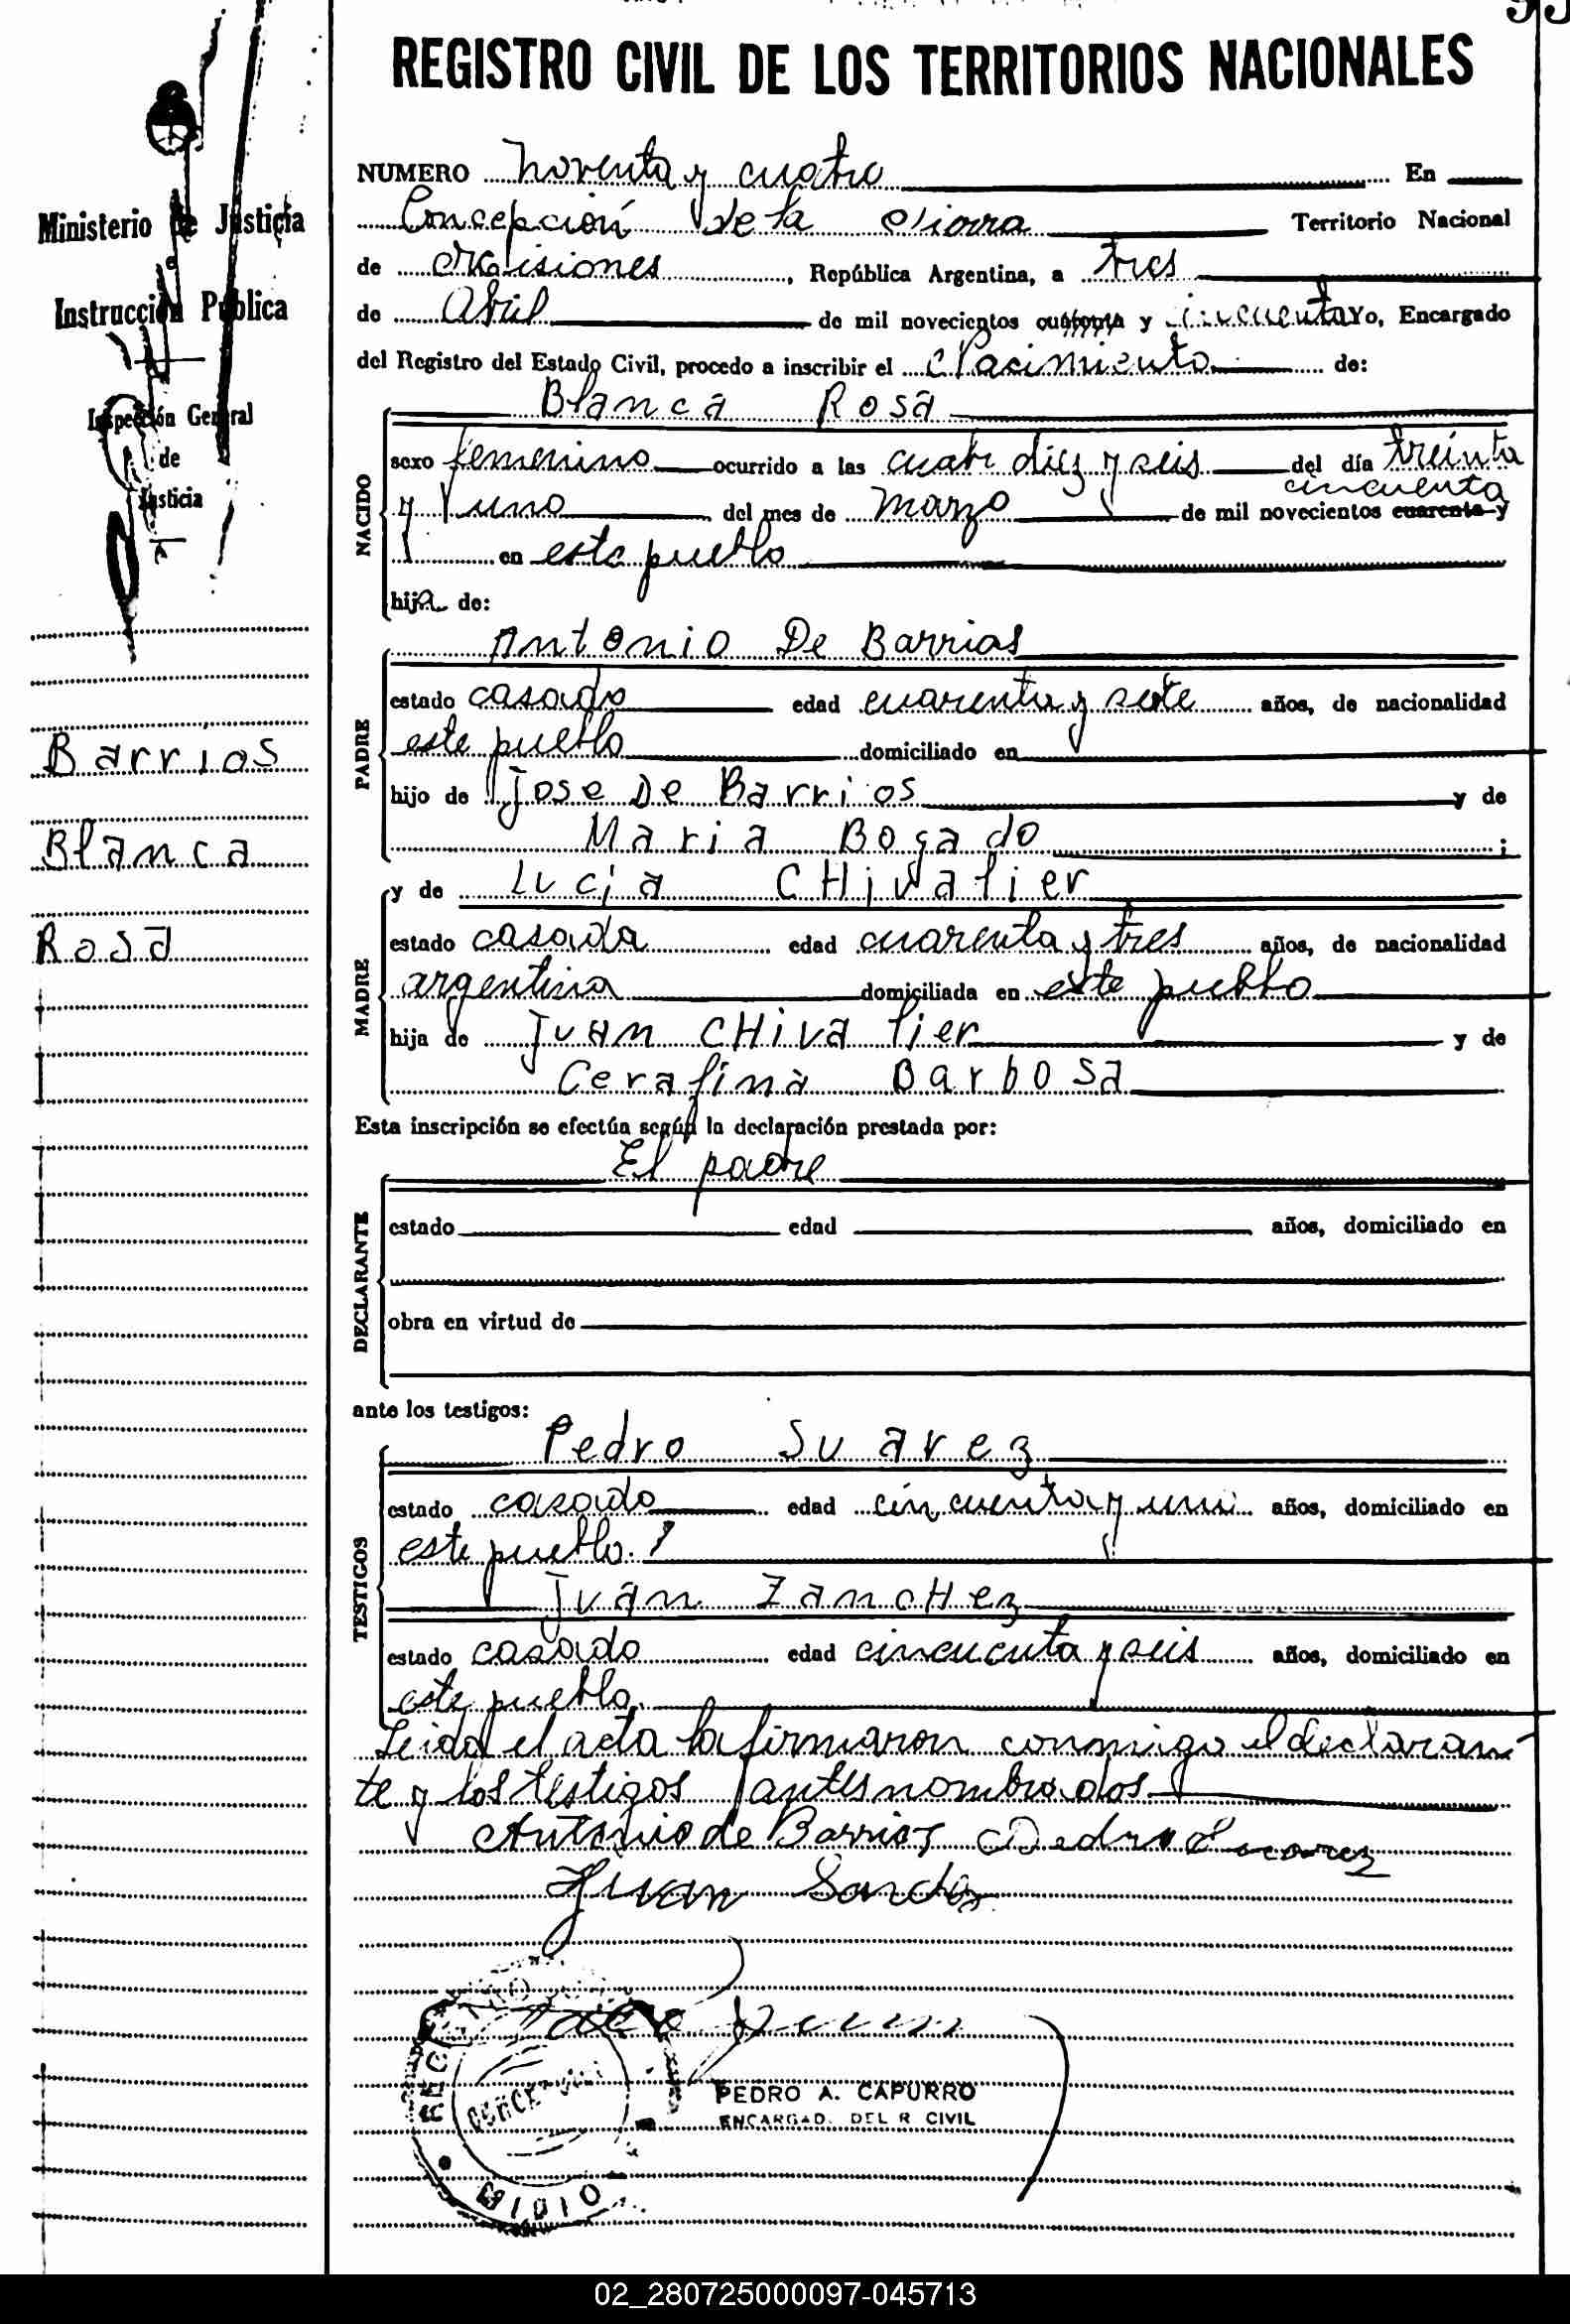 REGISTRO CIVIL DE LOS TERRITORIOS NACIONALES
Ministerio de Justicia
e
Instrucción Pública
Inspección General
de
Justicia
Barrios
Blanca
Rosa
NUMERO noventa y cuatro En
Concepción de la Sierra Territorio Nacional
de Misiones, República Argentina, a tres
de Abril de mil novecientos cuarenta y cincuenta Yo, Encargado
del Registro del Estado Civil, procedo a inscribir el Nacimiento de:
Blanca Rosa
NACIDO
sexo femenino ocurrido a las diez y seis del día treinta
cincuenta
y uno del mes de marzo de mil novecientos cuarenta y
en este pueblo
hija de:
Antonio De Barrios
PADRE
estado casado edad cuarenta y siete años, de nacionalidad
este pueblo domiciliado en
hijo de Jose De Barrios y de
Maria Bogado ;
y de Lucia CHivalier
MADRE
estado casada edad cuarenta y tres años, de nacionalidad
argentina domiciliada en este pueblo
hija de Juan CHivalier y de
Cerafina Barbosa
Esta inscripción se efectúa según la declaración prestada por:
El padre
DECLARANTE
estado edad años, domiciliado en
obra en virtud de
ante los testigos:
Pedro Suarez
TESTIGOS
estado casado edad cincuenta y uno años, domiciliado en
este pueblo.
Juan ZancHez
estado casado edad cincuenta y seis años, domiciliado en
este pueblo.
Leida el acta la firmaron conmigo el declaran-
te y los testigos antes nombrados
Antonio de Barrios Pedro Suarez
Juan
PEDRO A. CAPURRO
ENCARGAD. DEL R. CIVIL
02_280725000097-045713